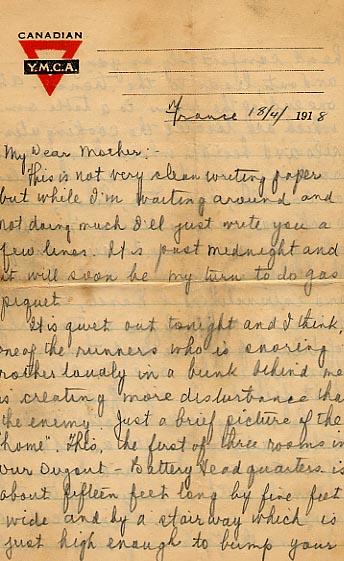 CANADIAN
Y.M.C.A.
France 18/4/ 1918
My Dear Mother:-
This is not very clean writing paper
but while I'm waiting around and
not doing much I'll just write you a
few lines. It is past midnight and
it will soon be my turn to do gas
piquet.
It is quiet out tonight and I think,
one of the runners who is snoring
rather loudly in a bunk behind me
is creating more disturbance than
the enemy. Just a brief picture of the
"home". This, the first of three rooms in
our dugout - Battery Headquarters is
about fifteen feet long by five feet
wide and by a stairway which is
just high enough to bump your